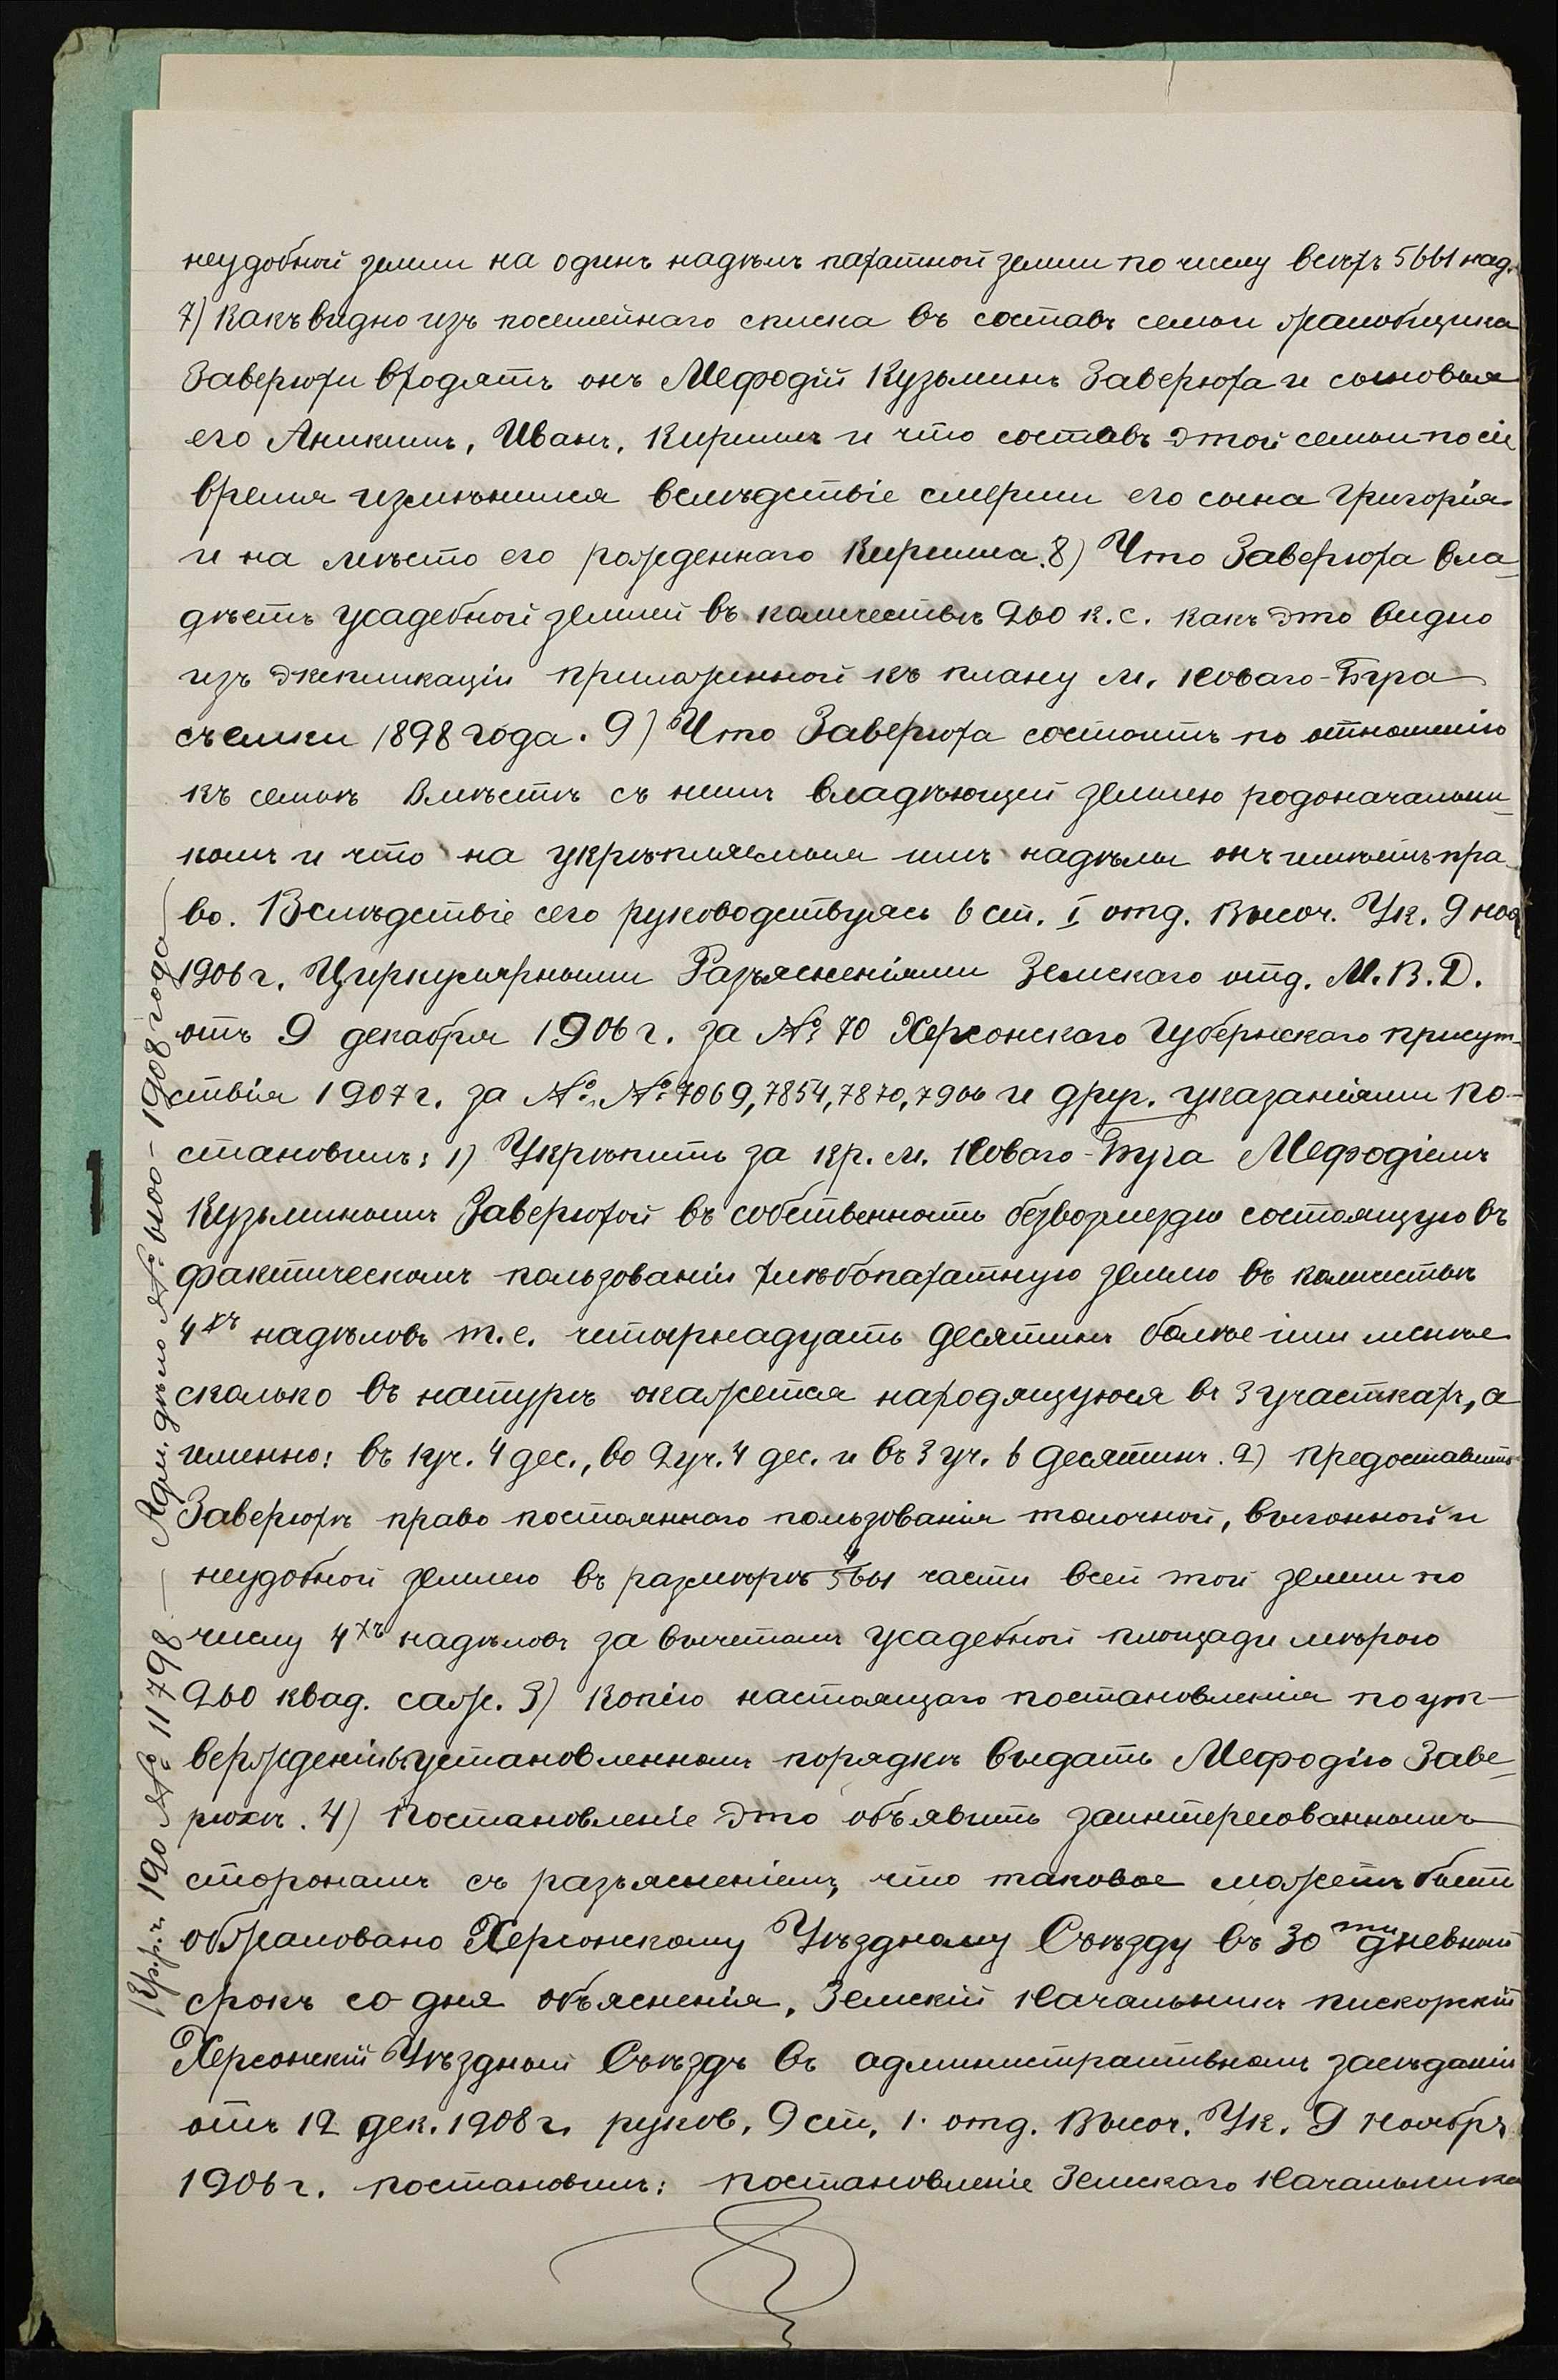 неудобной земли на одинъ надѣлъ пахатной земли по числу всѣхъ 5661 над.
7) Какъ видно изъ посемейнаго списка въ составъ семьи жалобщика
Заверюхи входятъ онъ Мефодій Кузьминъ Заверюха и сыновья
его Аникимъ, Иванъ, Кирилъ и что составъ этой семьи по сіе
время измѣнился вслѣдствіе смерти его сына Григорія
и на мѣсто его рожденнаго Кирилла. 8) Что Заверюха вла-
дѣетъ усадебной землей въ количествѣ 260 к. с. какъ это видно
изъ экспликаціи приложенной къ плану м. Новаго-Буга
съемки 1898 года. 9) Что Заверюха состоитъ по отношенію
къ семьѣ вмѣстѣ съ нимъ владѣющей землею родоначальни-
комъ и что на укрѣпляемыя имъ надѣлы онъ имѣетъ пра-
во. Вслѣдствіе сего руководствуясь 6 ст. I отд. Высоч. Ук. 9 ноя
1906 г. Циркулярными Разъясненіями Земскаго отд. М. В. Д.
отъ 9 декабря 1906 г. за № 70 Херсонскаго Губернскаго присут-
ствія 1907 г. за №№ 7069, 7854, 7870, 7906 и друг. указаніями по-
становилъ: 1) Укрѣпить за кр. м. Новаго-Буга Мефодіемъ
Кузьминымъ Заверюхой въ собственность безвозмездно состоящую въ
фактическомъ пользованіи хлѣбопахатную землю въ количествѣ
4хъ надѣловъ т. е. четырнадцать десятинъ болѣе или менѣе
сколько въ натурѣ окажется находящуюся въ 3 участкахъ, а
именно: въ 1 уч. 4 дес., во 2 уч. 4 дес. и въ 3 уч. 6 десятинъ. 2) Предоставить
Заверюхѣ право постояннаго пользованія толочной, выгонной и
неудобной землею въ размѣрѣ 4/5661 части всей той земли по
числу 4хъ надѣловъ за вычетомъ усадебной площади мѣрою
260 квад. саж. 3) Копію настоящаго постановленія по ут-
вержденіи въ установленномъ порядкѣ выдать Мефодію Заве-
рюхѣ. 4) Постановленіе это объявить заинтересованнымъ
сторонамъ съ разъясненіемъ, что таковое можетъ быть
обжаловано Херсонскому Уѣздному Съѣзду въ 30ти дневный
срокъ со дня объясненія. Земскій Начальникъ Пискорскій
Херсонскій Уѣздный Съѣздъ въ административномъ засѣданіи
отъ 12 дек. 1908 г. руков. 9 ст. 1. отд. Высоч. Ук. 9 ноября
1906 г. постановилъ: постановленіе Земскаго Начальника
Кр. р. г. 190 № 11798 — Адм. дѣло № 6100 - 1908 года
1